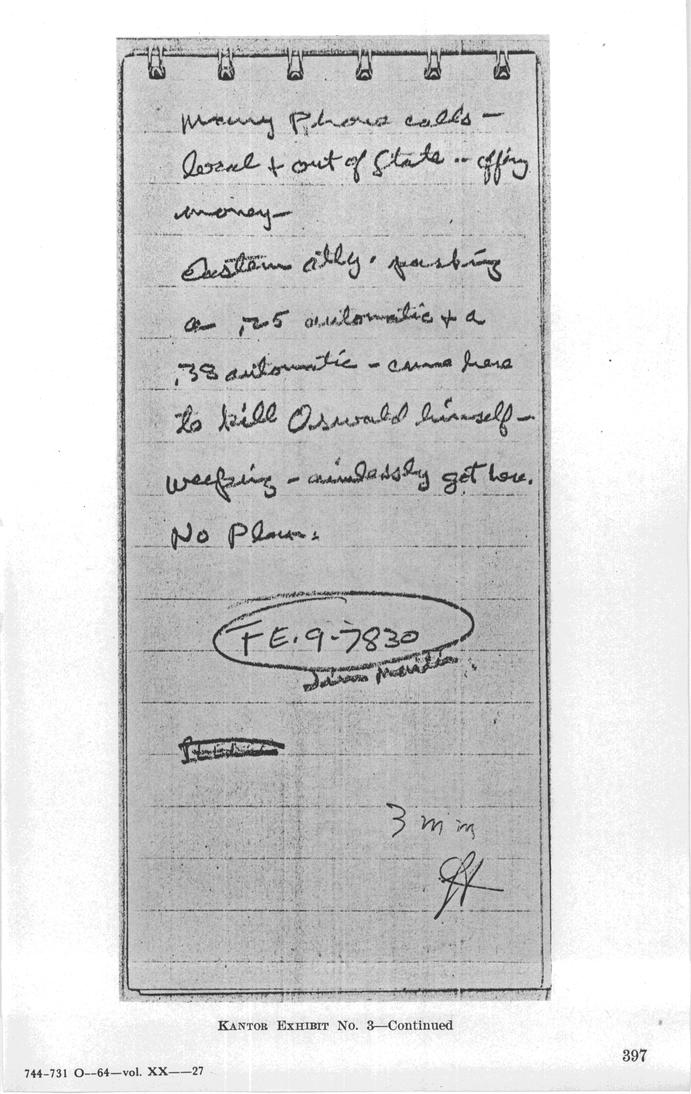 many Phone calls –
local + out of State -- offring
money –
Eastern atty. packing
a .25 automatic + a
.38 automatic – came here
to kill Oswald himself –
weeping – aimlessly got here.
No Plan.
FE.9-7830
3 mm
KANTOR EXHIBIT NO. 3—Continued
397
744-731 O--64—vol. XX——27